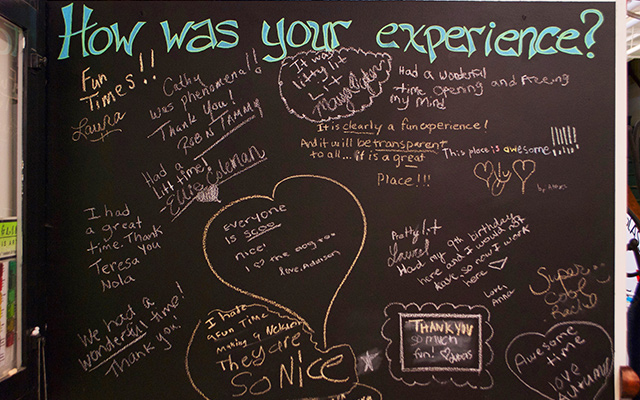 How was your experience?
Fun
Times!!
Laura
Cathy
was phenomenal!!
Thank you!
Rob N Tammy
It was
litty lit
Lit
Had a wonderful
time opening and freeing
my mind
It is clearly a fun experience!
And it will be transparent
to all... it is a great
Place!!!
This place is awesome!!!!!
Had a
litt time!
Ellie Coleman
I had
a great
time. Thank
you
Teresa
Nola
everyone
is sooo
nice!
I the dog
love, Addison
Pretty lit
Laurel
Had my 9th birthday
here and I would not
leave so now I work
here
Love,
Anna
Super
cool
We had a
wonderful time!
Thank you!
I hate
a fun Time
making a
They are
SO NICE
THANK YOU
so much
fun!
Awesome
time
love
Autumn